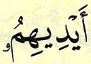 أَيْدِيهِمُۥ